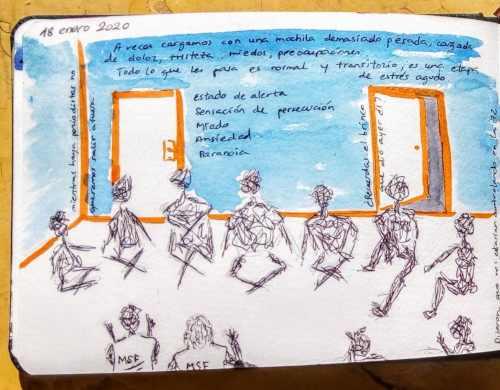 18 enero 2020
A veces cargamos con una mochila demasiado pesada, cargada
de dolor, tristeza, miedos, preocupaciones.
Todo lo que les pasa es normal y transitorio, es una etapa
de estrés agudo
Estado de alerta
Sensación de persecución
Miedo
Ansiedad
Paranoia
mientras haya periodistas no
queremos salir afuera
¿Recuerdas el brinco
que dio ayer él?
MSF
MSF